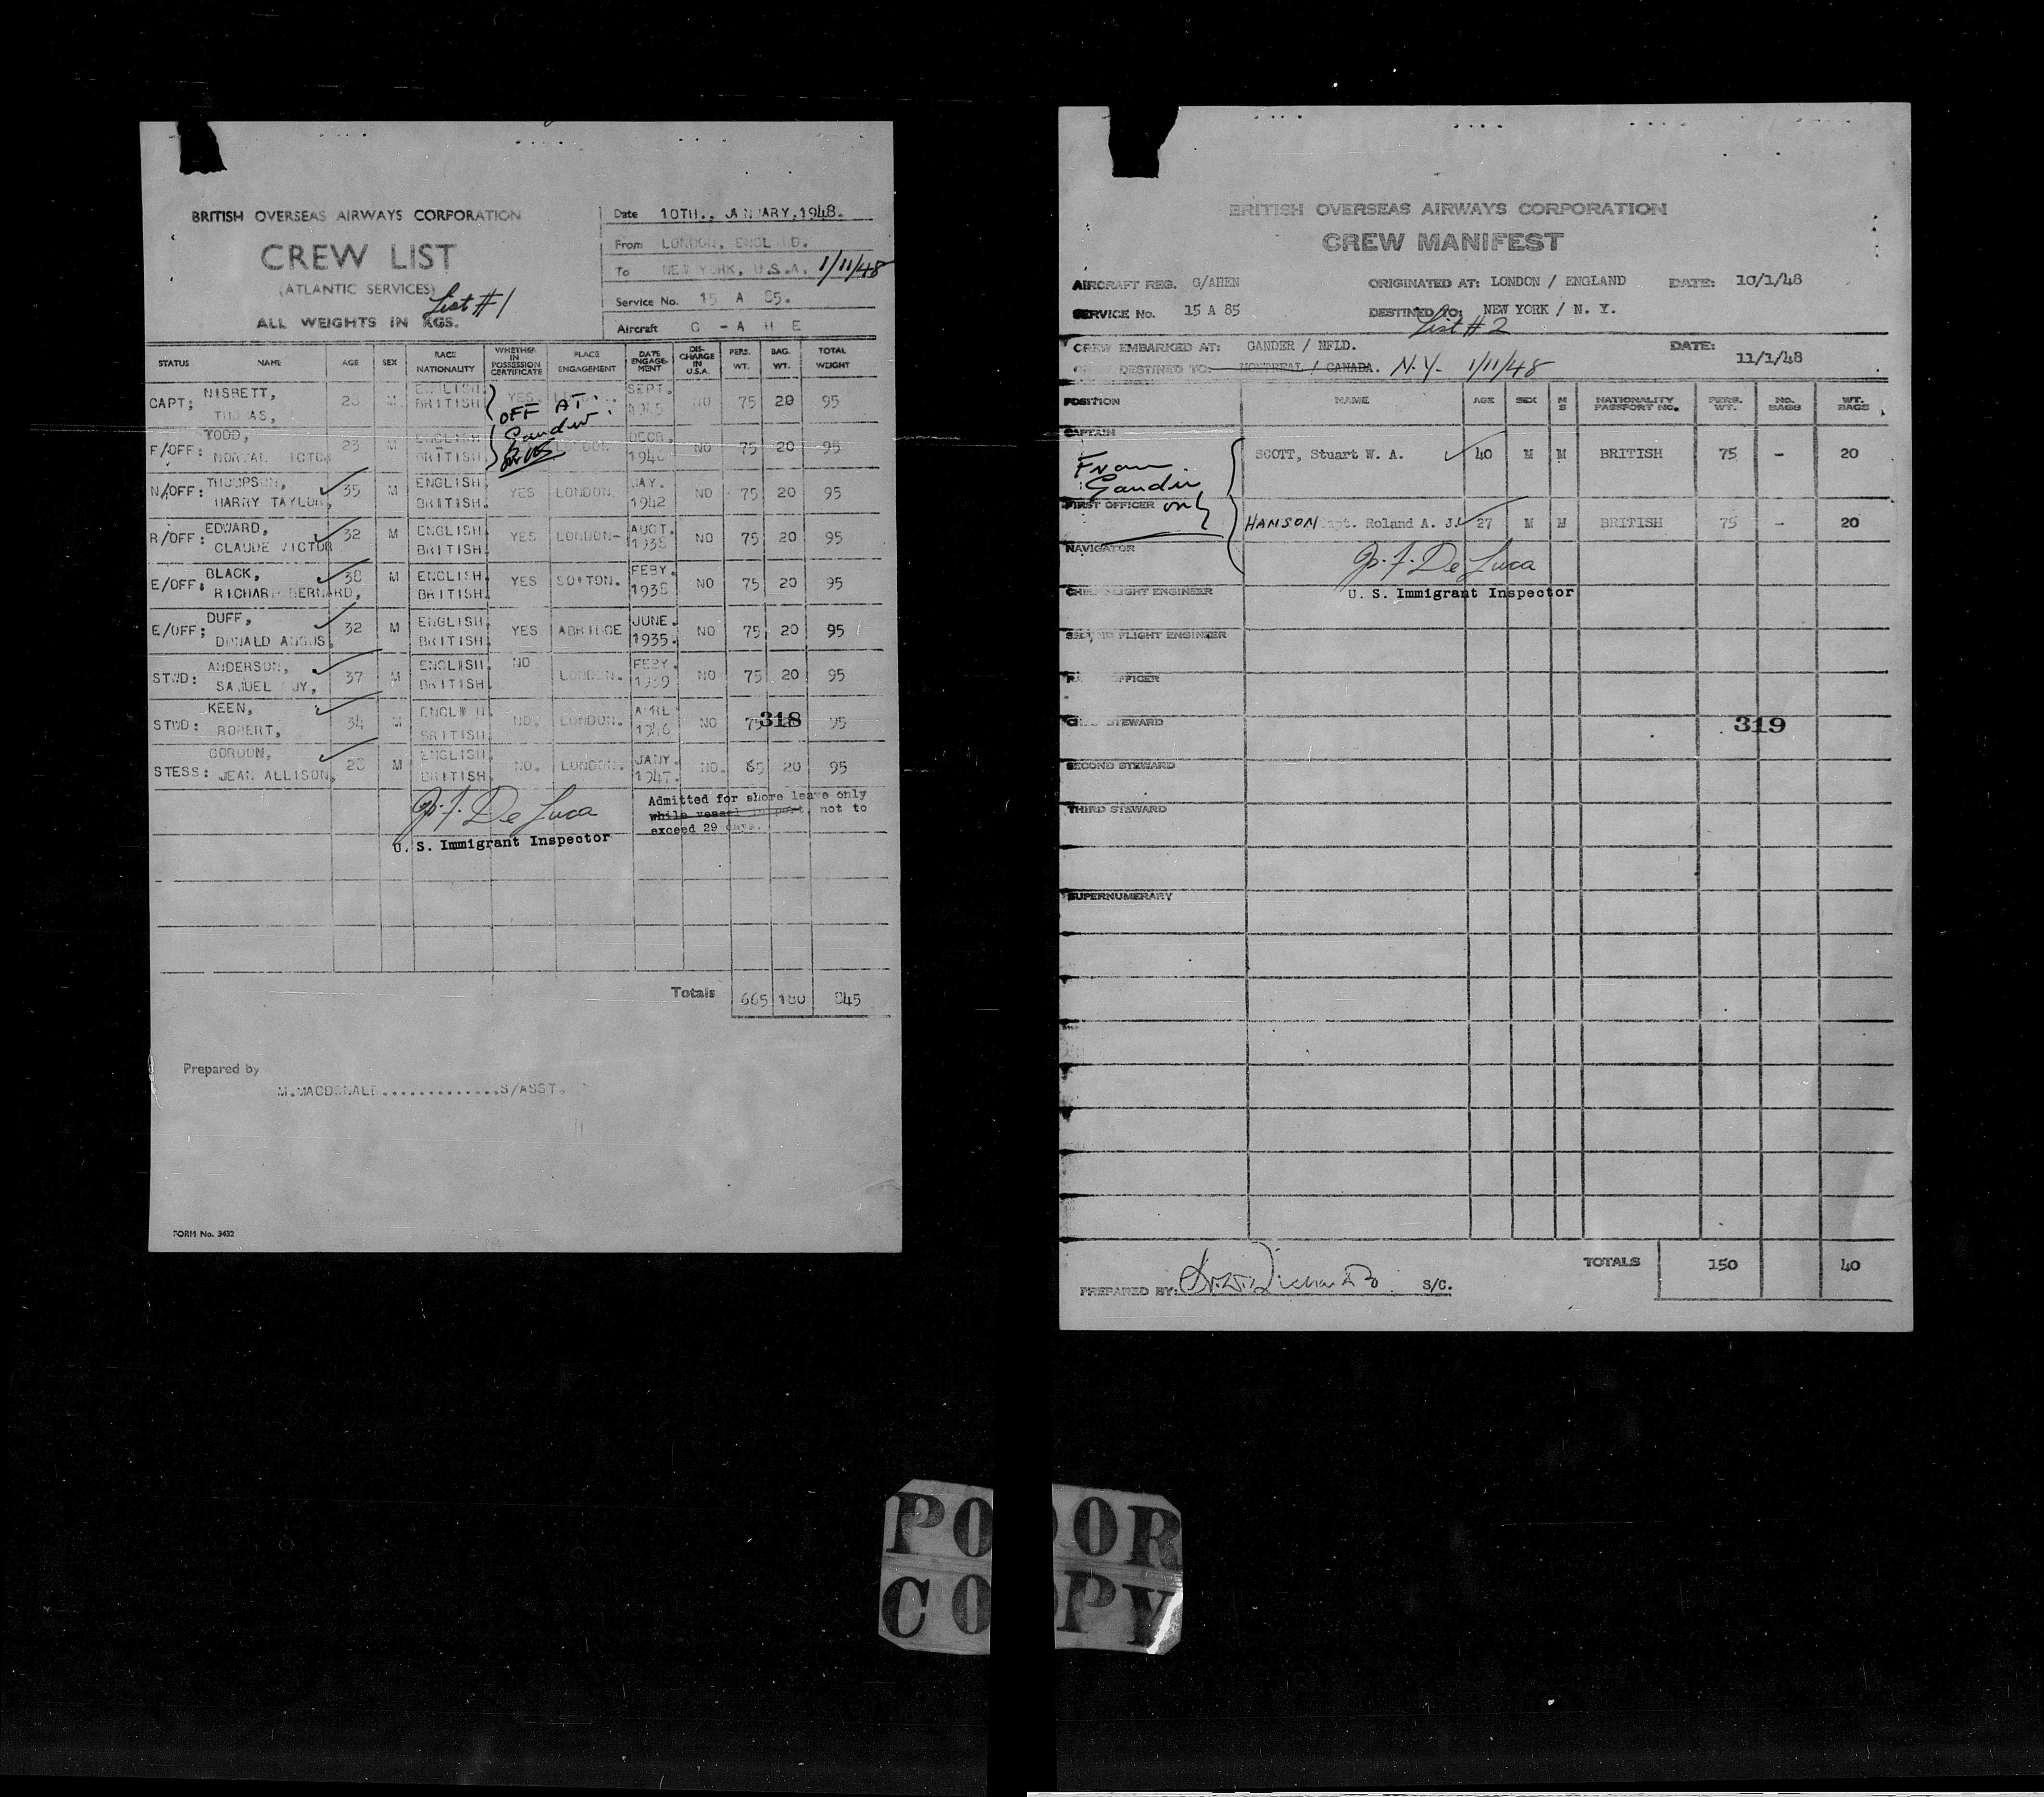 BRITISH OVERSEAS AIRWAYS CORPORATION
CREW LIST
(ATLANTIC SERVICES)
List #1
ALL WEIGHTS IN KGS.
Date 10TH., JANUARY, 1948.
From LONDON, ENGLAND.
To NEW YORK, U.S.A. 1/11/48
Service No. 15 A 85.
Aircraft G - A H E
STATUS NAME AGE SEX RACE NATIONALITY WHETHER IN POSSESSION CERTIFICATE PLACE ENGAGEMENT DATE ENGAGE-MENT DIS-CHARGE IN U.S.A. PERS. WT. BAG. WT. TOTAL WEIGHT
CAPT; NISBETT, THOMAS, 28 M ENGLISH. BRITISH. YES. SEPT. NO 75 20 95
OFF AT: Gander
F/OFF: TODD, NORMAN VICTOR 23 M ENGLISH BRITISH. DECB. 1946 NO 75 20 95
N/OFF: THOMPSON, HARRY TAYLOR, 35 M ENGLISH. BRITISH. YES LONDON. MAY. 1942 NO 75 20 95
R/OFF: EDWARD, CLAUDE VICTOR 32 M ENGLISH BRITISH. YES LONDON- AUGT. 1938 NO 75 20 95
E/OFF: BLACK, RICHARD BERNARD, 38 M ENGLISH. BRITISH. YES SO'TON. FEBY. 1938 NO 75 20 95
E/OFF; DUFF, DONALD ANGUS, 32 M ENGLISH. BRITISH. YES ABRIDGE JUNE. 1935. NO 75 20 95
STWD: ANDERSON, SAMUEL GUY, 37 M ENGLISH. BRITISH. NO LONDON. FEBY. 1939 NO 75 20 95
STWD: KEEN, ROBERT, 34 M ENGLISH BRITISH. NO. LONDON. APRL 1946 NO 75 318 95
STESS: GORDON, JEAN ALLISON, 28 M ENGLISH. BRITISH. NO. LONDON. JANY. 1947. NO. 65 20 95
P. J. De Luca
U. S. Immigrant Inspector
Admitted for shore leave only
while vessel in port, not to
exceed 29 days.
Totals 665 180 845
Prepared by
M.MACDONALD.............S/ASST.
FORM No. 3432
BRITISH OVERSEAS AIRWAYS CORPORATION
CREW MANIFEST
AIRCRAFT REG. G/AHEN ORIGINATED AT: LONDON / ENGLAND DATE: 10/1/48
SERVICE No. 15 A 85 DESTINED TO: NEW YORK / N. Y.
List #2
CREW EMBARKED AT: GANDER / NFLD. DATE: 11/1/48
CREW DESTINED TO: MONTREAL / CANADA. N.Y. 1/11/48
POSITION NAME AGE SEX M S NATIONALITY PASSPORT NO. PERS. WT. NO. BAGS WT. BAGS
CAPTAIN SCOTT, Stuart W. A. 40 M M BRITISH 75 - 20
From Gander only
FIRST OFFICER HANSON Capt. Roland A. J. 27 M M BRITISH 75 - 20
NAVIGATOR
P. J. De Luca
U. S. Immigrant Inspector
CHIEF FLIGHT ENGINEER
SECOND FLIGHT ENGINEER
RADIO OFFICER
CHIEF STEWARD 319
SECOND STEWARD
THIRD STEWARD
SUPERNUMERARY
TOTALS 150 40
PREPARED BY: S/C.
POOR
COPY